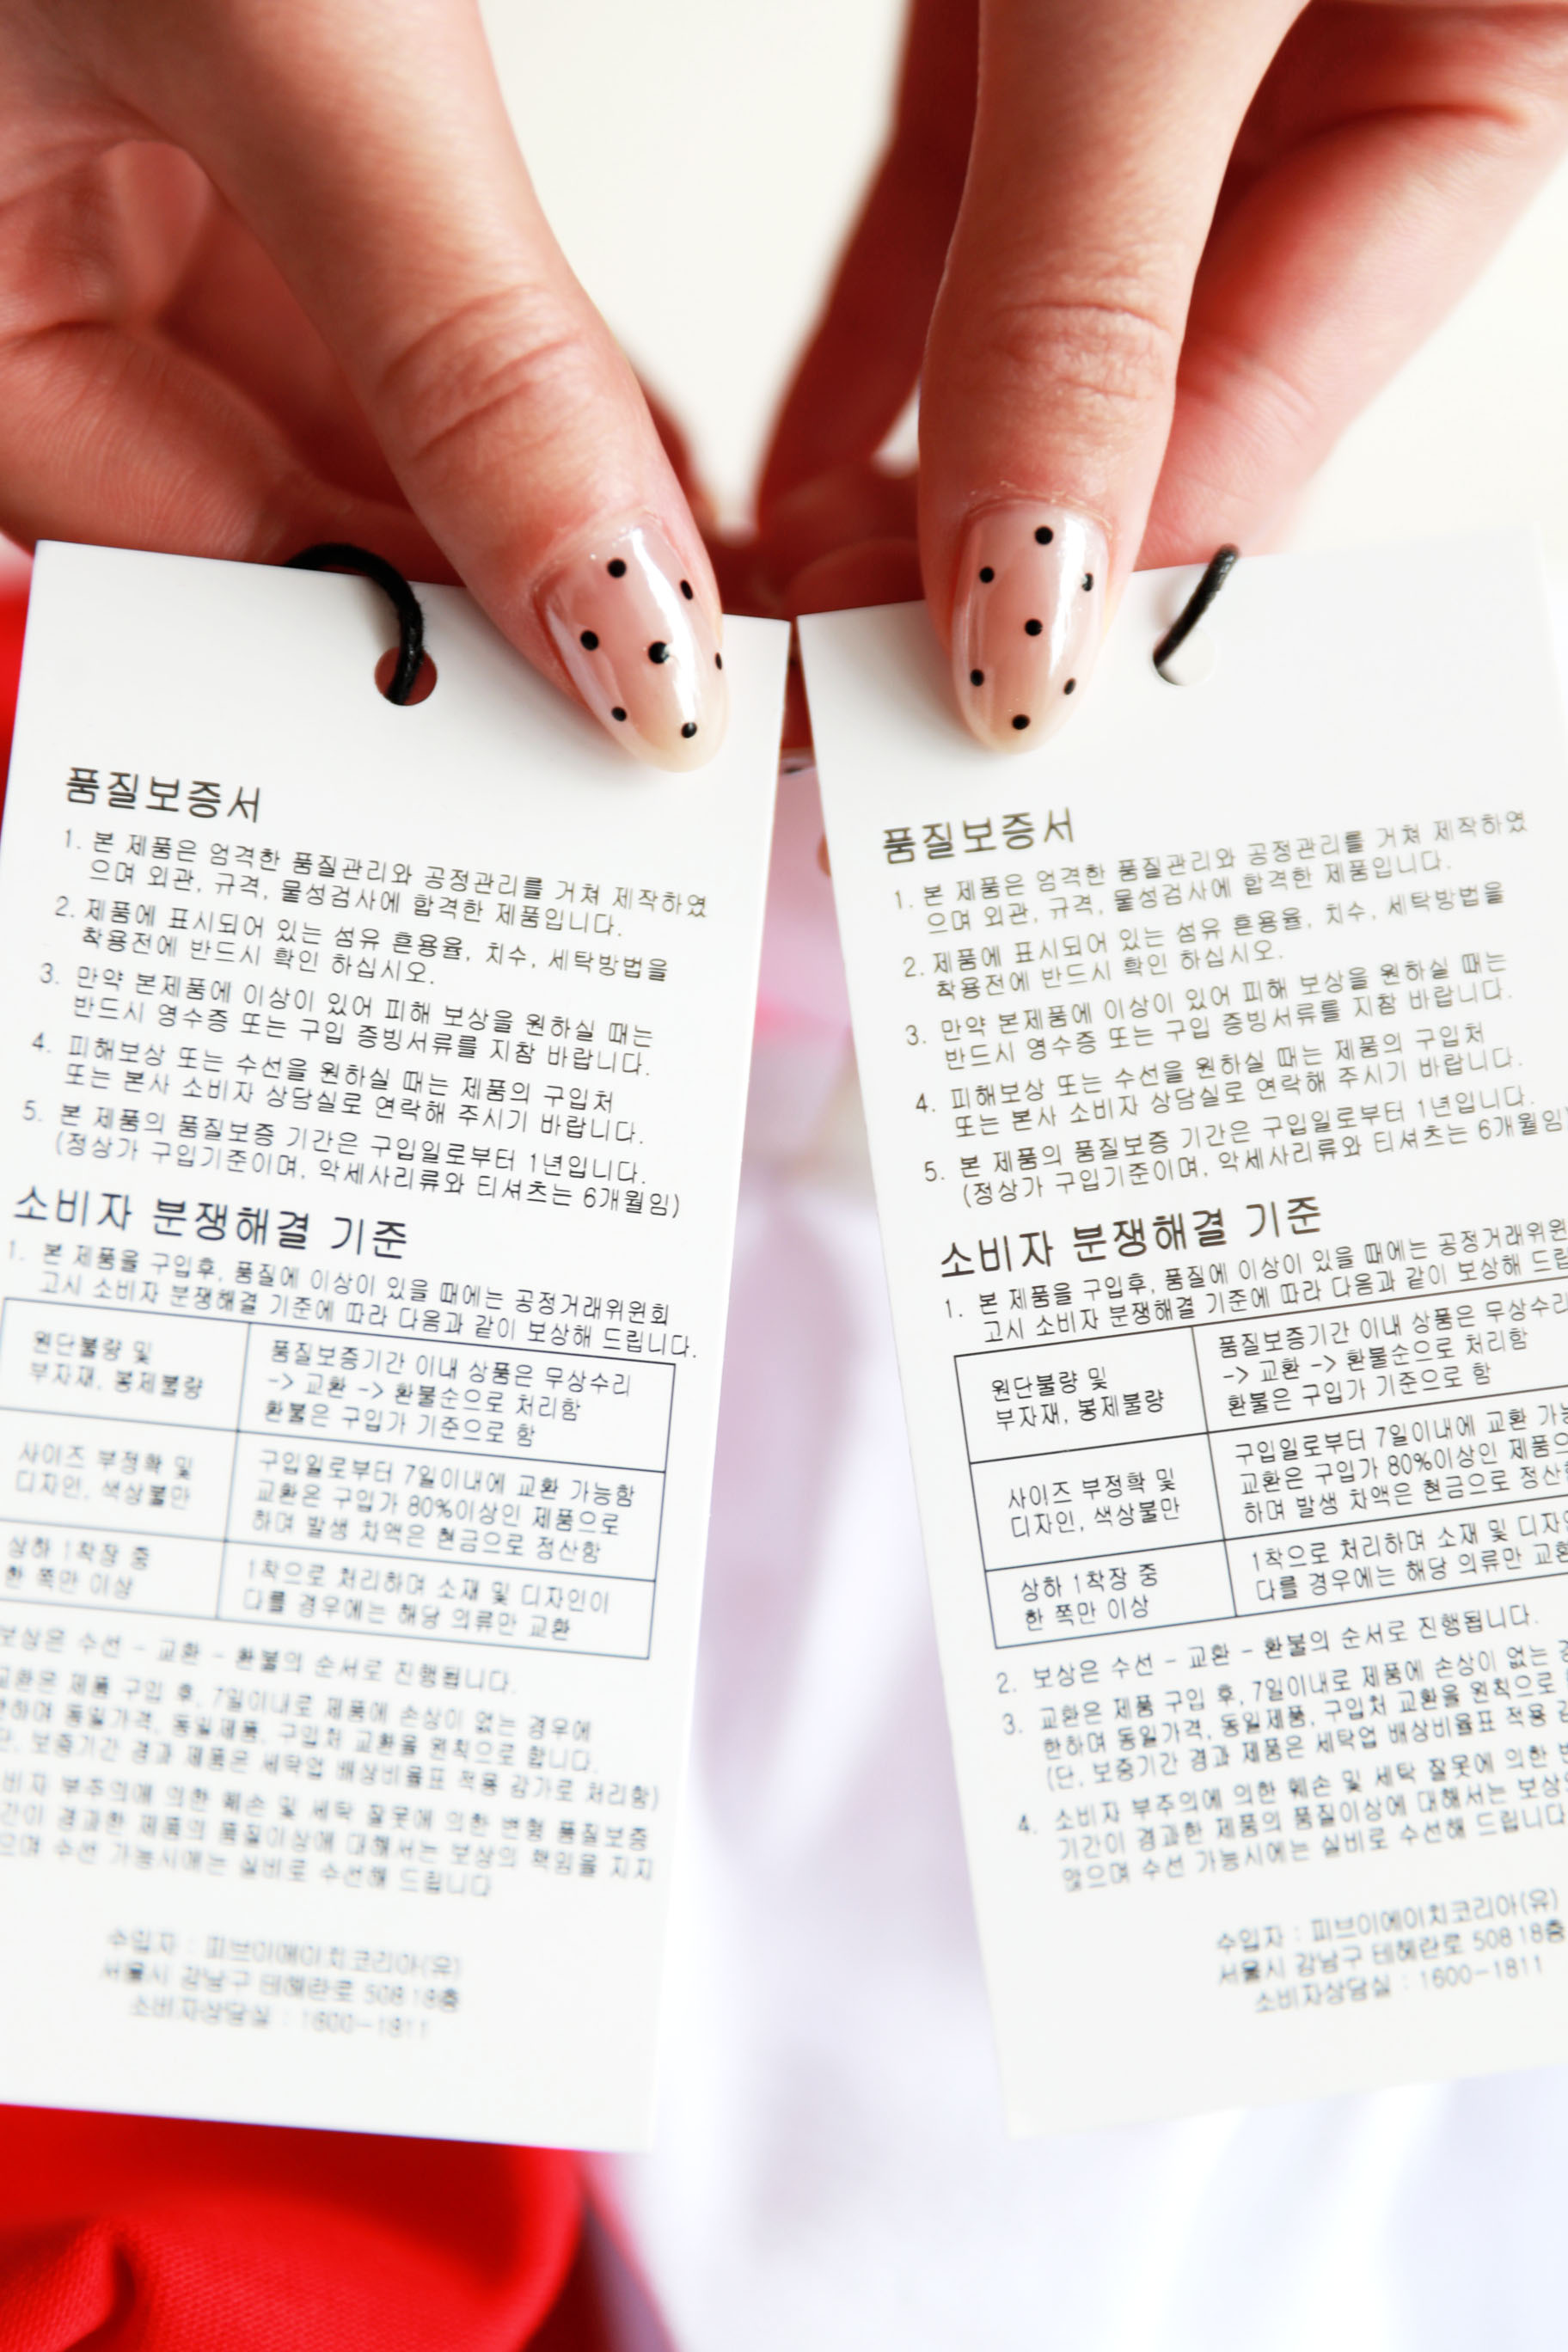 품질보증서
1. 본 제품은 엄격한 품질관리와 공정관리를 거쳐 제작하였
으며 외관, 규격, 물성검사에 합격한 제품입니다.
2. 제품에 표시되어 있는 섬유 혼용율, 치수, 세탁방법을
착용전에 반드시 확인 하십시오.
3. 만약 본제품에 이상이 있어 피해 보상을 원하실 때는
반드시 영수증 또는 구입 증빙서류를 지참 바랍니다.
4. 피해보상 또는 수선을 원하실 때는 제품의 구입처
또는 본사 소비자 상담실로 연락해 주시기 바랍니다.
5. 본 제품의 품질보증 기간은 구입일로부터 1년입니다.
(정상가 구입기준이며, 악세사리류와 티셔츠는 6개월임)
소비자 분쟁해결 기준
1. 본 제품을 구입후, 품질에 이상이 있을 때에는 공정거래위원회
고시 소비자 분쟁해결 기준에 따라 다음과 같이 보상해 드립니다.
원단불량 및
부자재, 봉제불량
품질보증기간 이내 상품은 무상수리
-> 교환 -> 환불순으로 처리함
환불은 구입가 기준으로 함
사이즈 부정확 및
디자인, 색상불만
구입일로부터 7일이내에 교환 가능함
교환은 구입가 80%이상인 제품으로
하며 발생 차액은 현금으로 정산함
상하 1착장 중
한 쪽만 이상
1착으로 처리하며 소재 및 디자인이
다를 경우에는 해당 의류만 교환
보상은 수선 - 교환 - 환불의 순서로 진행됩니다.
교환은 제품 구입 후, 7일이내로 제품에 손상이 없는 경우에
한하여 동일가격, 동일제품, 구입처 교환을 원칙으로 합니다.
단, 보증기간 경과 제품은 세탁업 배상비율표 적용 감가로 처리함)
비자 부주의에 의한 훼손 및 세탁 잘못에 의한 변형 품질보증
간이 경과한 제품의 품질이상에 대해서는 보상의 책임을 지지
으며 수선 가능시에는 실비로 수선해 드립니다
수입자 : 피브이에이치코리아(유)
서울시 강남구 테헤란로 508 18층
소비자상담실 : 1600-1811
품질보증서
1. 본 제품은 엄격한 품질관리와 공정관리를 거쳐 제작하였
으며 외관, 규격, 물성검사에 합격한 제품입니다.
2. 제품에 표시되어 있는 섬유 혼용율, 치수, 세탁방법을
착용전에 반드시 확인 하십시오.
3. 만약 본제품에 이상이 있어 피해 보상을 원하실 때는
반드시 영수증 또는 구입 증빙서류를 지참 바랍니다.
4. 피해보상 또는 수선을 원하실 때는 제품의 구입처
또는 본사 소비자 상담실로 연락해 주시기 바랍니다.
5. 본 제품의 품질보증 기간은 구입일로부터 1년입니다.
(정상가 구입기준이며, 악세사리류와 티셔츠는 6개월임)
소비자 분쟁해결 기준
1. 본 제품을 구입후, 품질에 이상이 있을 때에는 공정거래위원
고시 소비자 분쟁해결 기준에 따라 다음과 같이 보상해 드립
원단불량 및
부자재, 봉제불량
품질보증기간 이내 상품은 무상수리
-> 교환 -> 환불순으로 처리함
환불은 구입가 기준으로 함
사이즈 부정확 및
디자인, 색상불만
구입일로부터 7일이내에 교환 가능
교환은 구입가 80%이상인 제품으
하며 발생 차액은 현금으로 정산
상하 1착장 중
한 쪽만 이상
1착으로 처리하며 소재 및 디자인
다를 경우에는 해당 의류만 교환
2. 보상은 수선 - 교환 - 환불의 순서로 진행됩니다.
3. 교환은 제품 구입 후, 7일이내로 제품에 손상이 없는 경
한하며 동일가격, 동일제품, 구입처 교환을 원칙으로
(단, 보증기간 경과 제품은 세탁업 배상비율표 적용 감
4. 소비자 부주의에 의한 훼손 및 세탁 잘못에 의한 변
기간이 경과한 제품의 품질이상에 대해서는 보상의
않으며 수선 가능시에는 실비로 수선해 드립니다
수입자 : 피브이에이치코리아(유)
서울시 강남구 테헤란로 508 18층
소비자상담실 : 1600-1811